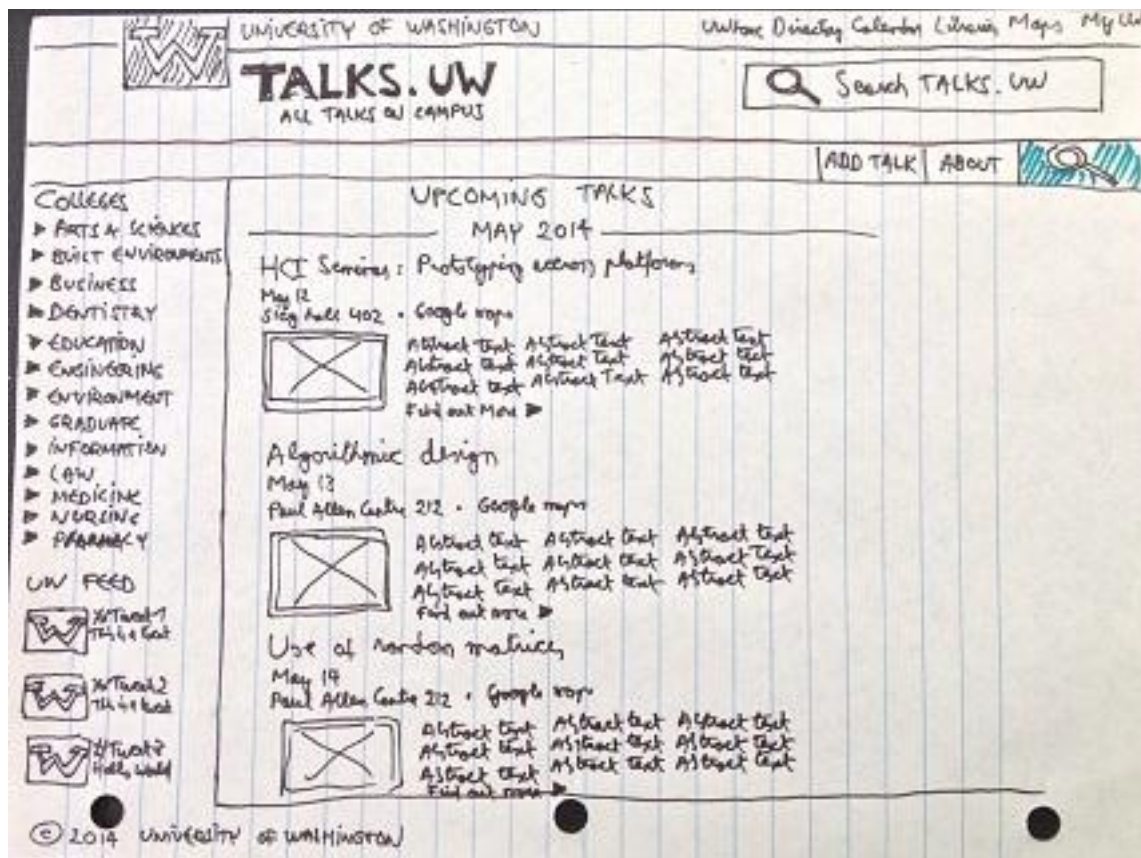 W UNIVERSITY OF WASHINGTON
UWHome Directory Calendar Libraries Maps My UW
TALKS.UW
ALL TALKS ON CAMPUS
Search TALKS.UW
ADD TALK ABOUT
COLLEGES
ARTS & SCIENCES
BUILT ENVIRONMENTS
BUSINESS
DENTISTRY
EDUCATION
ENGINEERING
ENVIRONMENT
GRADUATE
INFORMATION
LAW
MEDICINE
NURSING
PHARMACY
UW FEED
W Tweet 1
This is a tweet
W Tweet 2
This is a tweet
W
Hello World
UPCOMING TALKS
MAY 2014
HCI Seminar: Prototyping across platforms
May 12
Sieg Hall 402 • Google maps
Abstract Text Abstract Text Abstract text
Abstract text Abstract Text Abstract text
Abstract text Abstract Text Abstract text
Find out More
Algorithmic design
May 13
Paul Allen Centre 212 • Google maps
Abstract text Abstract text Abstract text
Abstract text Abstract text Abstract Text
Abstract text Abstract text Abstract Text
Find out more
Use of random matrices
May 14
Paul Allen Centre 212 • Google maps
Abstract text Abstract text Abstract text
Abstract text Abstract text Abstract text
Abstract text Abstract text Abstract text
Find out more
© 2014 UNIVERSITY OF WASHINGTON